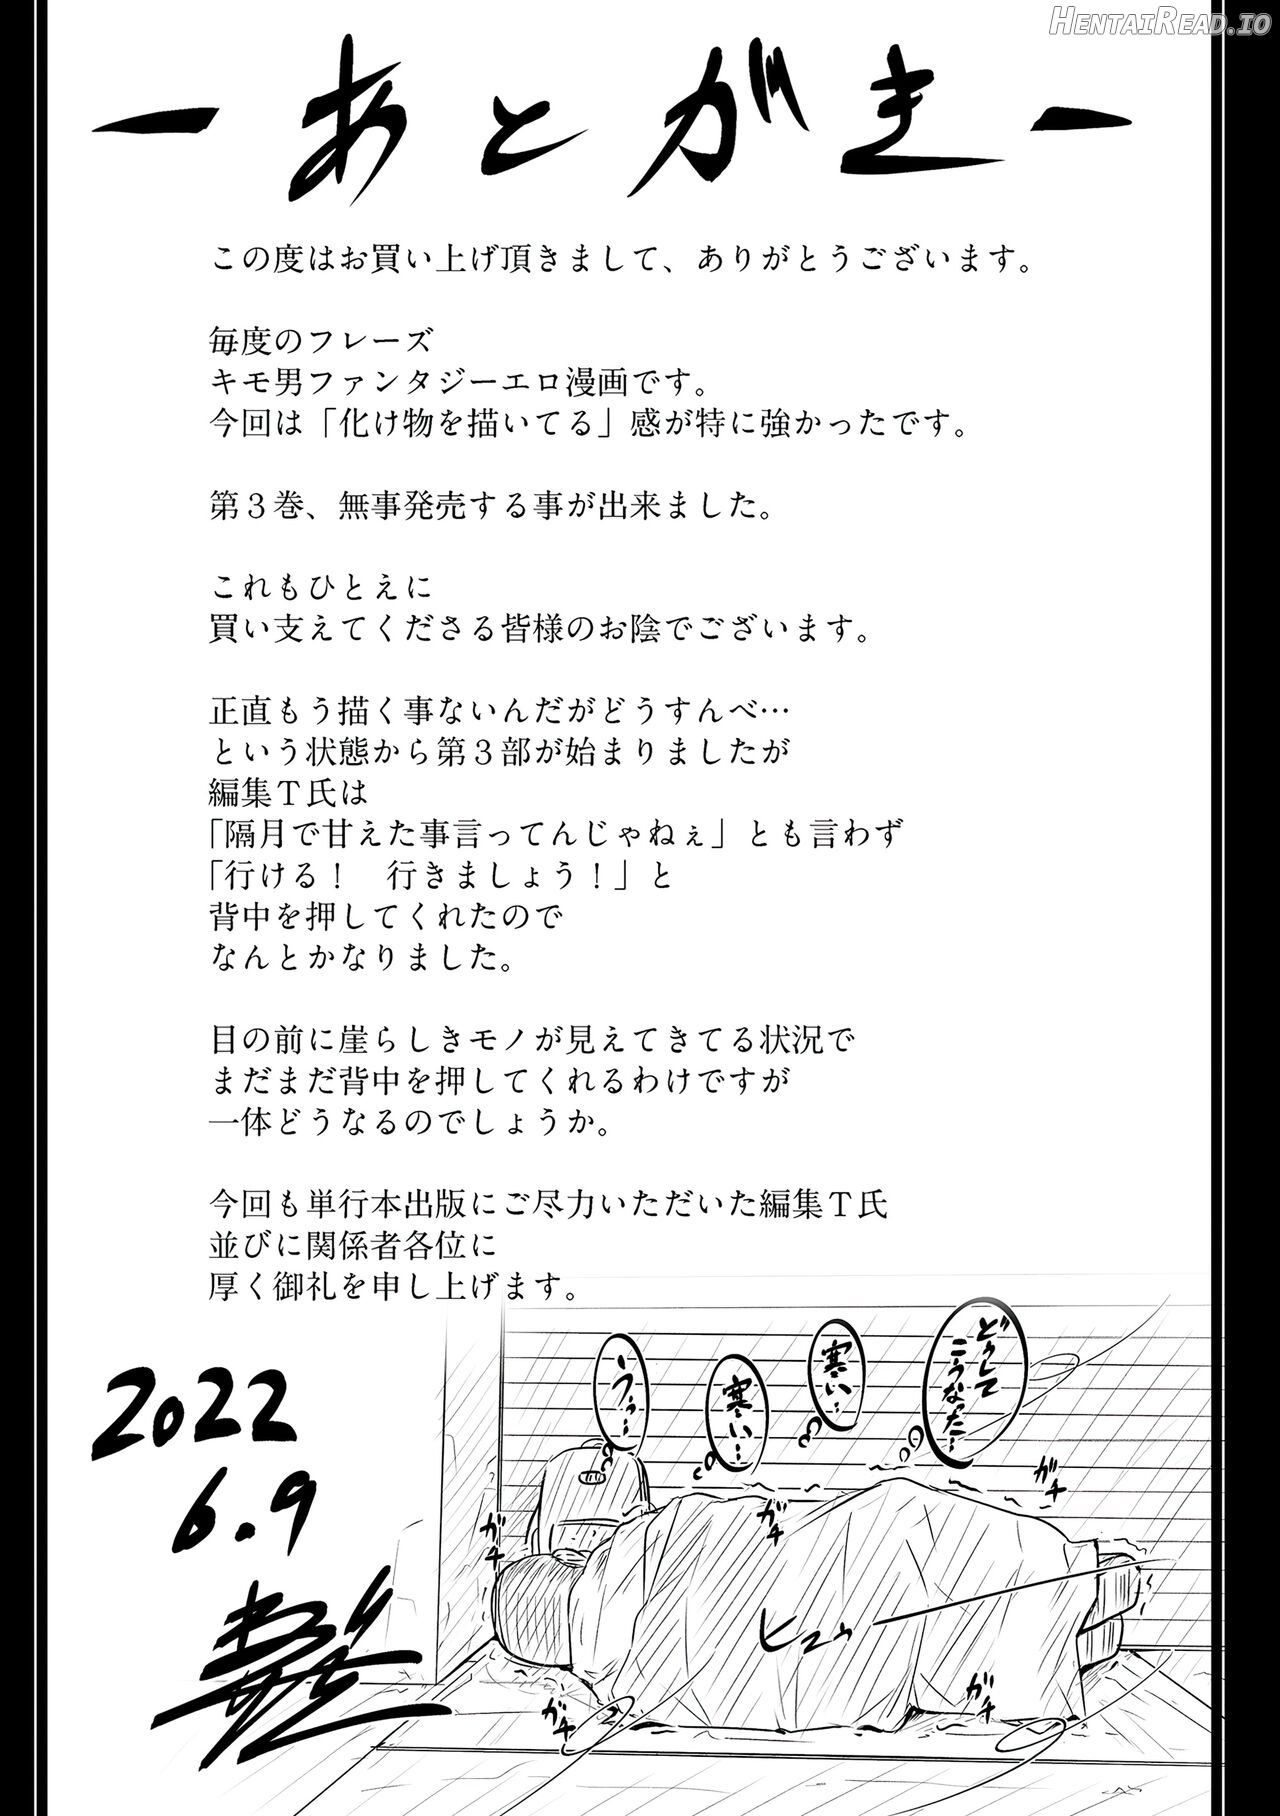 HENTAIREAD.IO
ーあとがきー
この度はお買い上げ頂きまして、ありがとうございます。
毎度のフレーズ
キモ男ファンタジーエロ漫画です。
今回は「化け物を描いてる」感が特に強かったです。
第３巻、無事発売する事が出来ました。
これもひとえに
買い支えてくださる皆様のお陰でございます。
正直もう描く事ないんだがどうすんべ…
という状態から第３部が始まりましたが
編集Ｔ氏は
「隔月で甘えた事言ってんじゃねぇ」とも言わず
「行ける！　行きましょう！」と
背中を押してくれたので
なんとかなりました。
目の前に崖らしきモノが見えてきてる状況で
まだまだ背中を押してくれるわけですが
一体どうなるのでしょうか。
今回も単行本出版にご尽力いただいた編集Ｔ氏
並びに関係者各位に
厚く御礼を申し上げます。
どうして
こうなった…
寒い…
寒い…
うぅ…
ガチ
ガチ
ヒュゥ
ガチ
ガチ
2022
6.9